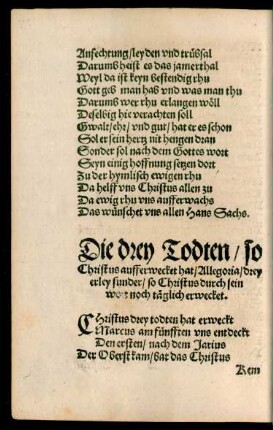 Anfechtung/leyden vnd trübsal
Darumb heist es das jamerthal
Weyl da ist keyn bestendig rhu
Gott geb man hab vnd was man thu
Darumb wer rhu erlangen wöll
Deselbig hie verachten soll
Gwalt/ehr/vnd gut/hat er es schon
Sol er sein hertz nit hengen dran
Sonder sol nach dem Gottes wort
Seyn einig hoffnung setzen dort
Zu der hymlisch ewigen rhu
Da helff vns Christus allen zu
Da ewig rhu vns aufferwachs
Das wünschet vns allen Hans Sachs.
Die drey Todten/so
Christus aufferwecket hat/Allegoria/drey
erley sünder/so Christus durch sein
wort noch täglich erwecket.
CHristus drey todten hat erweckt
Marcus am fünfften vns entdeckt
Den ersten/nach dem Jarius
Der Oberst kam/bat das Christus
Kem